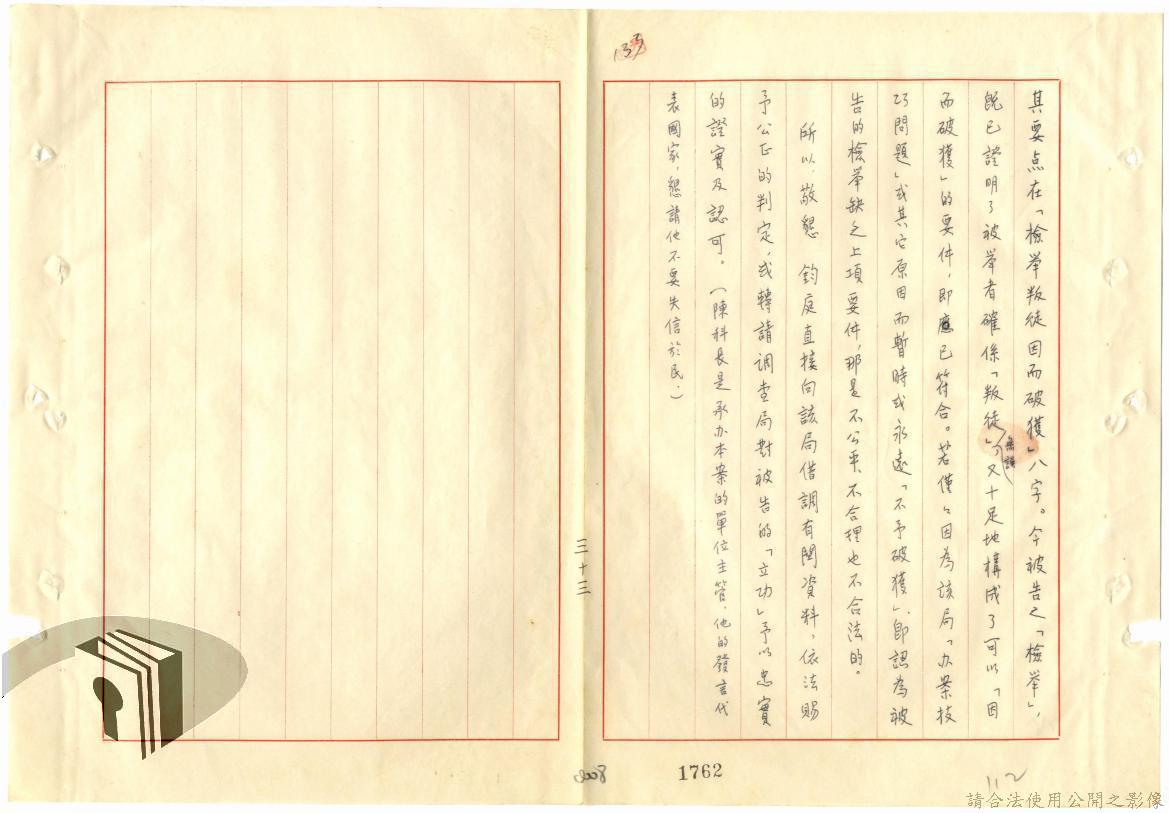 133
其要点在「檢举叛徒因而破獲」八字。今被告之「檢举」，
既已證明了被举者確係「叛徒」，又十足地構成了可以「因
而破獲」的要件，即應已符合。若僅々因為該局「办案技
巧問題」或其它原因而暫時或永遠「不予破獲」、即認為被
告的檢举缺乏上項要件，那是不公平、不合理也不合法的。
所以，敬懇 鈞庭直接向該局借調有関資料，依法賜
予公正的判定，或轉請調查局對被告的「立功」予以忠實
的證實及認可。（陳科長是承办本案的單位主管，他的發言代
表國家，懇請他不要失信於民。）
三十三
1762
112
請合法使用公開之影像